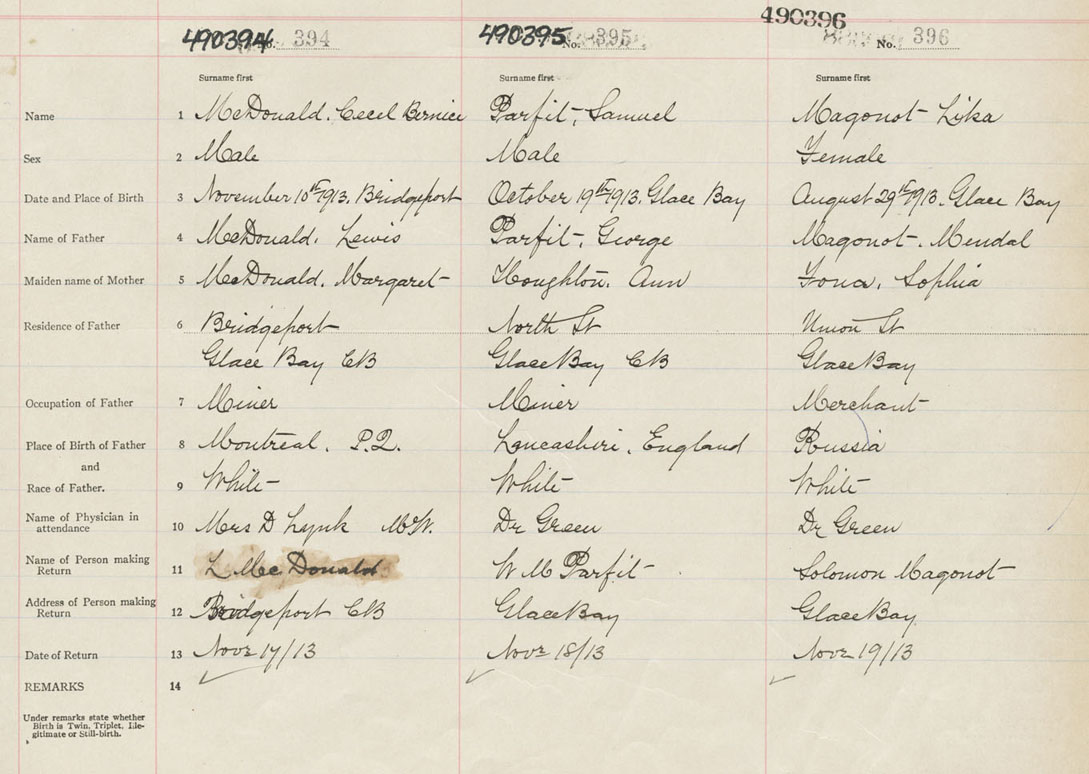 490394 No. 394 490395 No. 395 490396 No. 396
Surname first Surname first Surname first
Name 1 McDonald, Cecel Bernice Parfit, Samuel Magonot Lika
Sex 2 Male Male Female
Date and Place of Birth 3 November 10th 1913. Bridgeport October 19th 1913. Glace Bay August 29th 1913. Glace Bay
Name of Father 4 McDonald, Lewis Parfit, George Magonot, Mendal
Maiden name of Mother 5 McDonald, Margaret Houghton, Ann Sophia
Residence of Father 6 Bridgeport North St Union St
Glace Bay CB Glace Bay CB Glace Bay
Occupation of Father 7 Miner Miner Merchant
Place of Birth of Father 8 Montreal, P.Q. Lancashiri, England Russia
and
Race of Father. 9 White White White
Name of Physician in
attendance 10 Mrs D Lynk M.W. Dr Green Dr Green
Name of Person making
Return 11 L McDonald W M Parfit Solomon Magonot
Address of Person making
Return 12 Bridgeport CB Glace Bay Glace Bay
Date of Return 13 Novr 17/13 Novr 18/13 Novr 19/13
REMARKS 14
Under remarks state whether
Birth is Twin, Triplet, Ille-
gitimate or Still-birth.